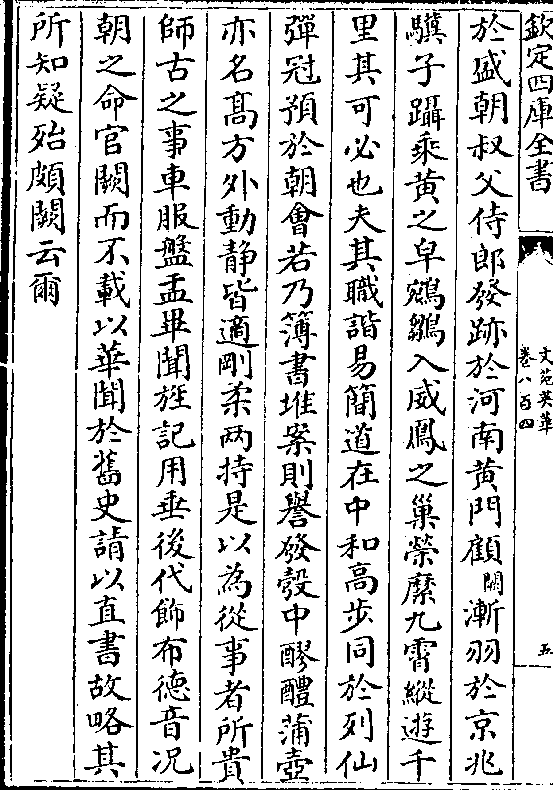 欽定四庫全書
文苑英華
卷八百四
五
於盛朝叔父侍郎發跡於河南黃門顧闕漸羽於京兆
驥子躡乘黃之皁鵷鶵入威鳳之巢榮縻九霄縱遊千
里其可必也夫其職諧易簡道在中和高步同於列仙
彈冠預於朝會若乃簿書堆案則譽發彀中醪醴蒲壺
亦名髙方外動靜皆適剛柔兩持是以為從事者所貴
師古之事車服盤盂畢聞旌記用垂後代飾布德音况
朝之命官闕而不載以華聞於舊史請以直書故略其
所知疑殆頗闕云爾